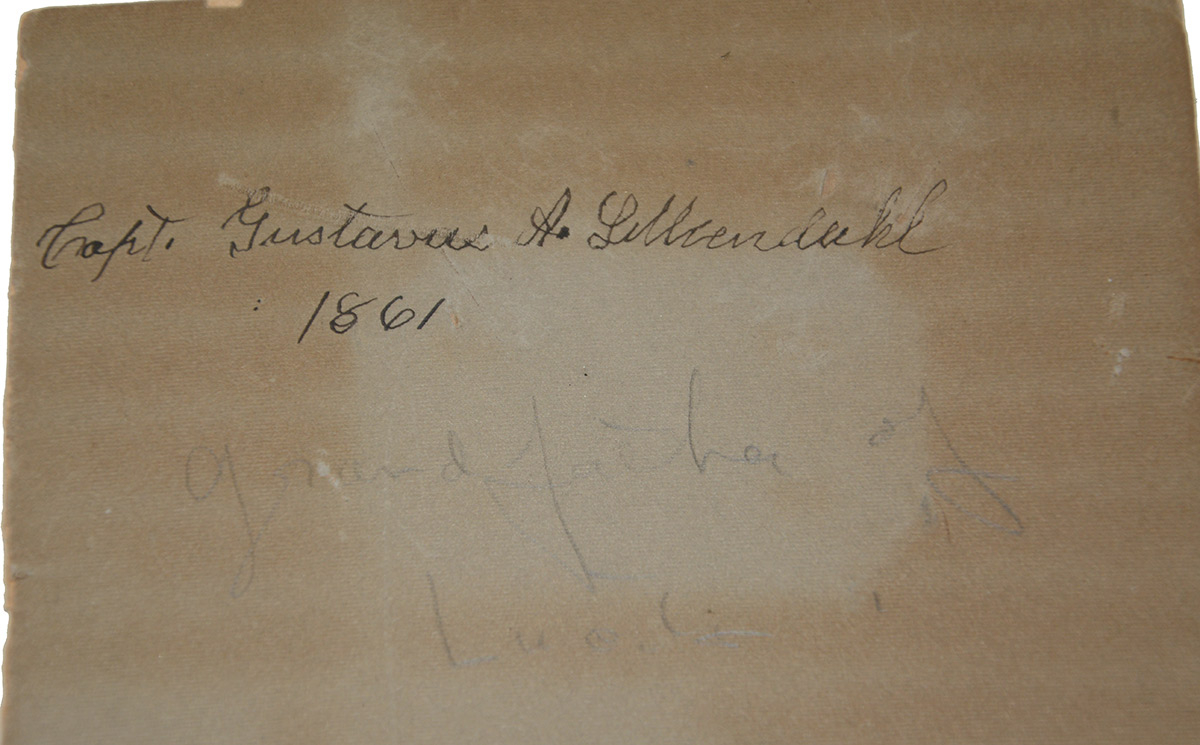 Capt. Gustavus A. Lilliendahl
1861
Grandfather of